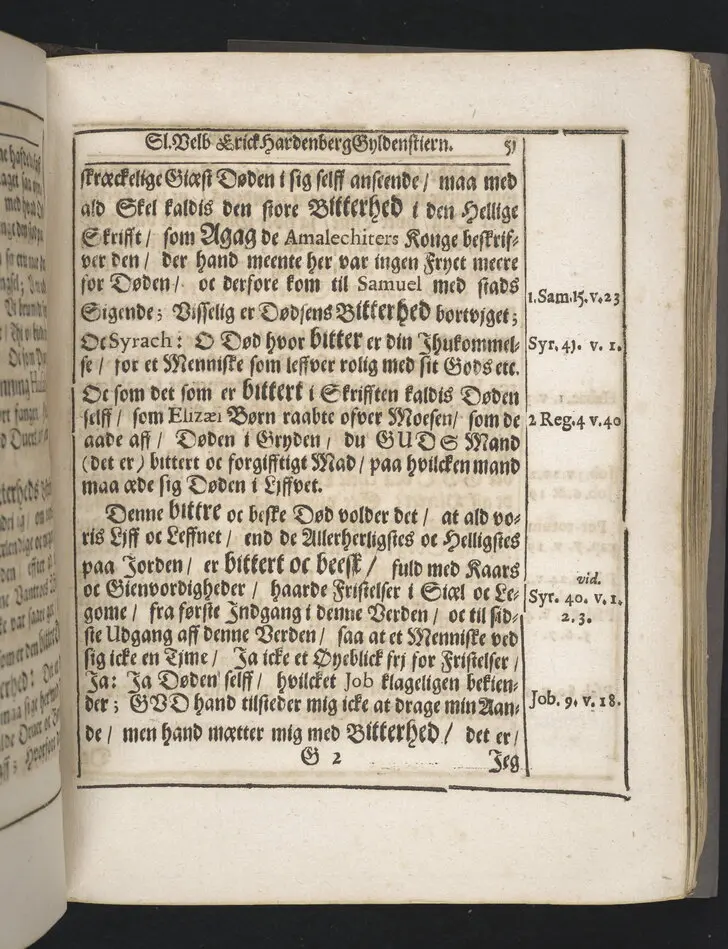 Sl. Velb Erick Hardenberg Gyldenstiern. 51
skræckelige Giæst Døden i sig selff anseende / maa med
ald Skel kaldis den store Bitterhed i den Hellige
Skrifft / som Agag de Amalechiters Konge beskrif-
ver den / der hand meente her var ingen Fryct meere
for Døden / oc derfore kom til Samuel med stads
Sigende; Visselig er Dødsens Bitterhed bortvjget;
Oc Syrach: O Død hvor bitter er din Ihukommel-
se / for et Menniske som leffver rolig med sit Gods etc.
Oc som det som er bittert i Skrifften kaldis Døden
selff / som Elizæi Børn raabte ofver Moesen / som de
aade aff / Døden i Gryden / du GUDS Mand
(det er) bittert oc forgifftigt Mad / paa hvilcken mand
maa æde sig Døden i Ljffvet.
Denne bittre oc beske Død volder det / at ald vo-
ris Ljff oc Leffnet / end de Allerherligstes oc Helligstes
paa Jorden / er bittert oc beesk / fuld med Kaars
oc Gienvordigheder / haarde Fristelser i Siæl oc Le-
gome / fra første Indgang i denne Verden / oc til sid-
ste Udgang aff denne Verden / saa at et Menniske ved
sig icke en Tjme / Ja icke et Øyeblick frj for Fristelser /
Ja: Ja Døden selff / hvilcket Job klageligen bekien-
der; GUD hand tilsteder mig icke at drage min Aan-
de / men hand mætter mig med Bitterhed / det er /
G 2 Jeg
1. Sam. 15. v. 23
Syr. 41. v. 1.
2 Reg. 4 v. 40
vid.
Syr. 40. v. 1.
2. 3.
Job. 9. v. 18.